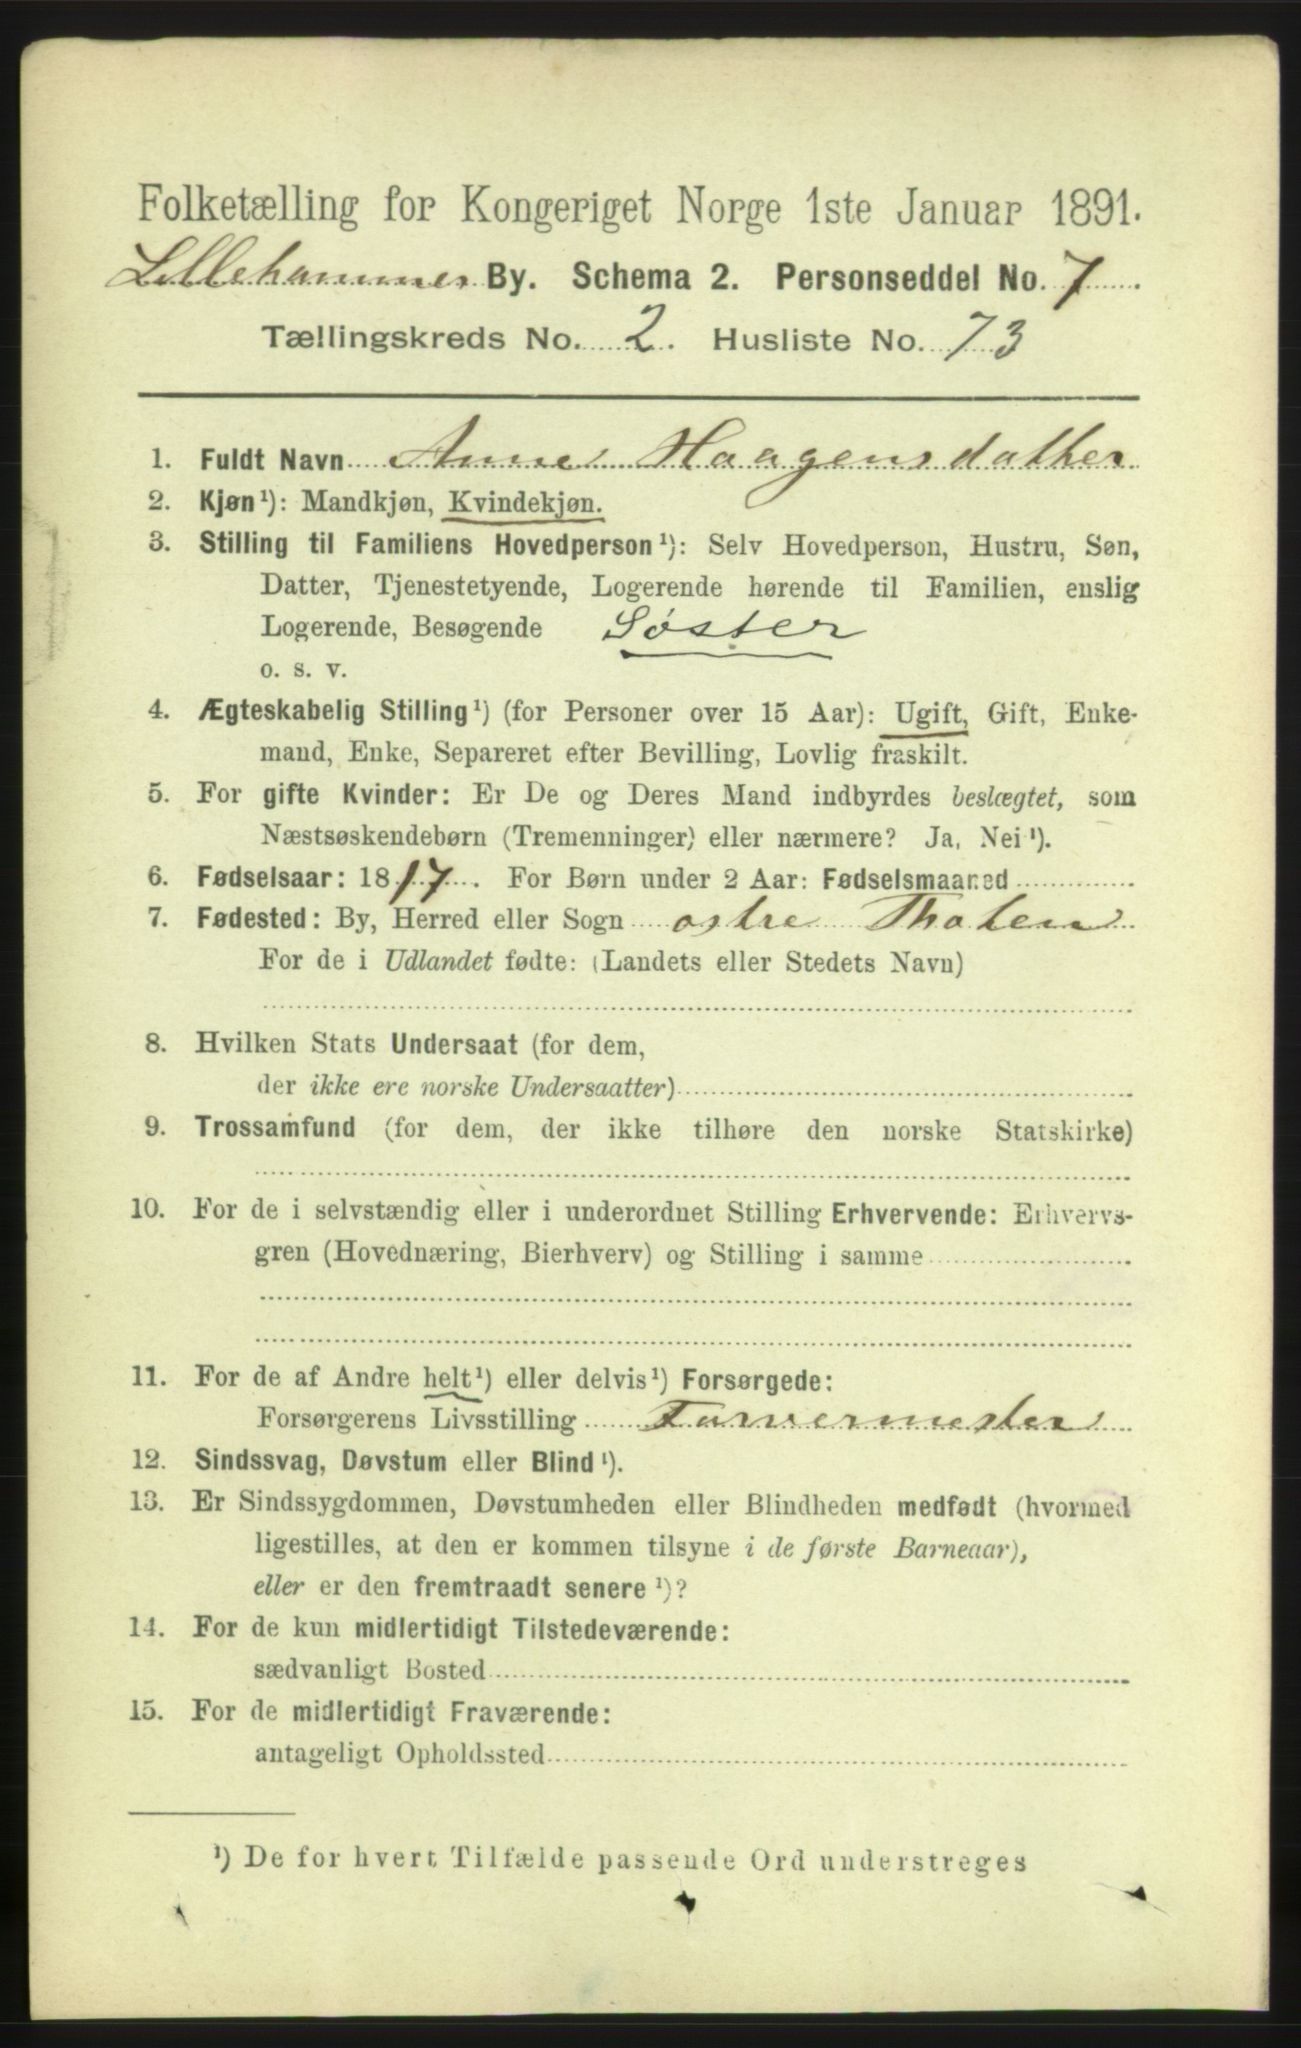 Folketælling for Kongeriget Norge 1ste Januar 1891.
Lillehammer By. Schema 2. Personseddel No. 7
Tællingskreds No. 2. Husliste No. 73
1. Fuldt Navn Anne Haagensdather
2. Kjøn¹): Mandkjøn, Kvindekjøn.
3. Stilling til Familiens Hovedperson¹): Selv Hovedperson, Hustru, Søn,
Datter, Tjenestetyende, Logerende hørende til Familien, enslig
Logerende, Besøgende Søster
o. s. v.
4. Ægteskabelig Stilling¹) (for Personer over 15 Aar): Ugift, Gift, Enke-
mand, Enke, Separeret efter Bevilling, Lovlig fraskilt.
5. For gifte Kvinder: Er De og Deres Mand indbyrdes beslægtet, som
Næstsøskendebørn (Tremenninger) eller nærmere? Ja, Nei¹).
6. Fødselsaar: 1817. For Børn under 2 Aar: Fødselsmaaned
7. Fødested: By, Herred eller Sogn ostre Thoten
For de i Udlandet fødte: (Landets eller Stedets Navn)
8. Hvilken Stats Undersaat (for dem,
der ikke ere norske Undersaatter)
9. Trossamfund (for dem, der ikke tilhøre den norske Statskirke)
10. For de i selvstændig eller i underordnet Stilling Erhvervende: Erhvervs-
gren (Hovednæring, Bierhverv) og Stilling i samme
11. For de af Andre helt¹) eller delvis¹) Forsørgede:
Forsørgerens Livsstilling Farvermester
12. Sindssvag, Døvstum eller Blind¹).
13. Er Sindssygdommen, Døvstumheden eller Blindheden medfødt (hvormed
ligestilles, at den er kommen tilsyne i de første Barneaar),
eller er den fremtraadt senere¹)?
14. For de kun midlertidigt Tilstedeværende:
sædvanligt Bosted
15. For de midlertidigt Fraværende:
antageligt Opholdssted
¹) De for hvert Tilfælde passende Ord understreges